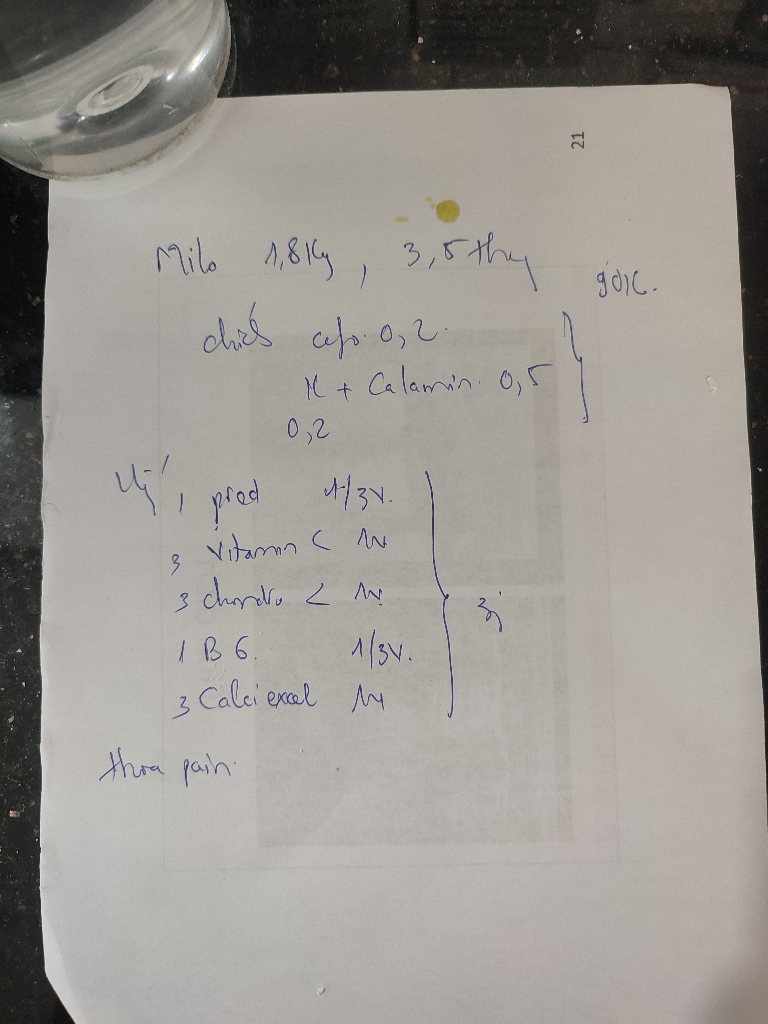 21
Milo 1,8Kg, 3,5 thg
chích cefo. 0,2.
K + Calamin. 0,5
0,2
1 pred 1/3v.
3 Vitamin C 1v
3 chondro < 1v.
1 B6. 1/3v.
3 Calci excel 1v
3j
thoa pain.